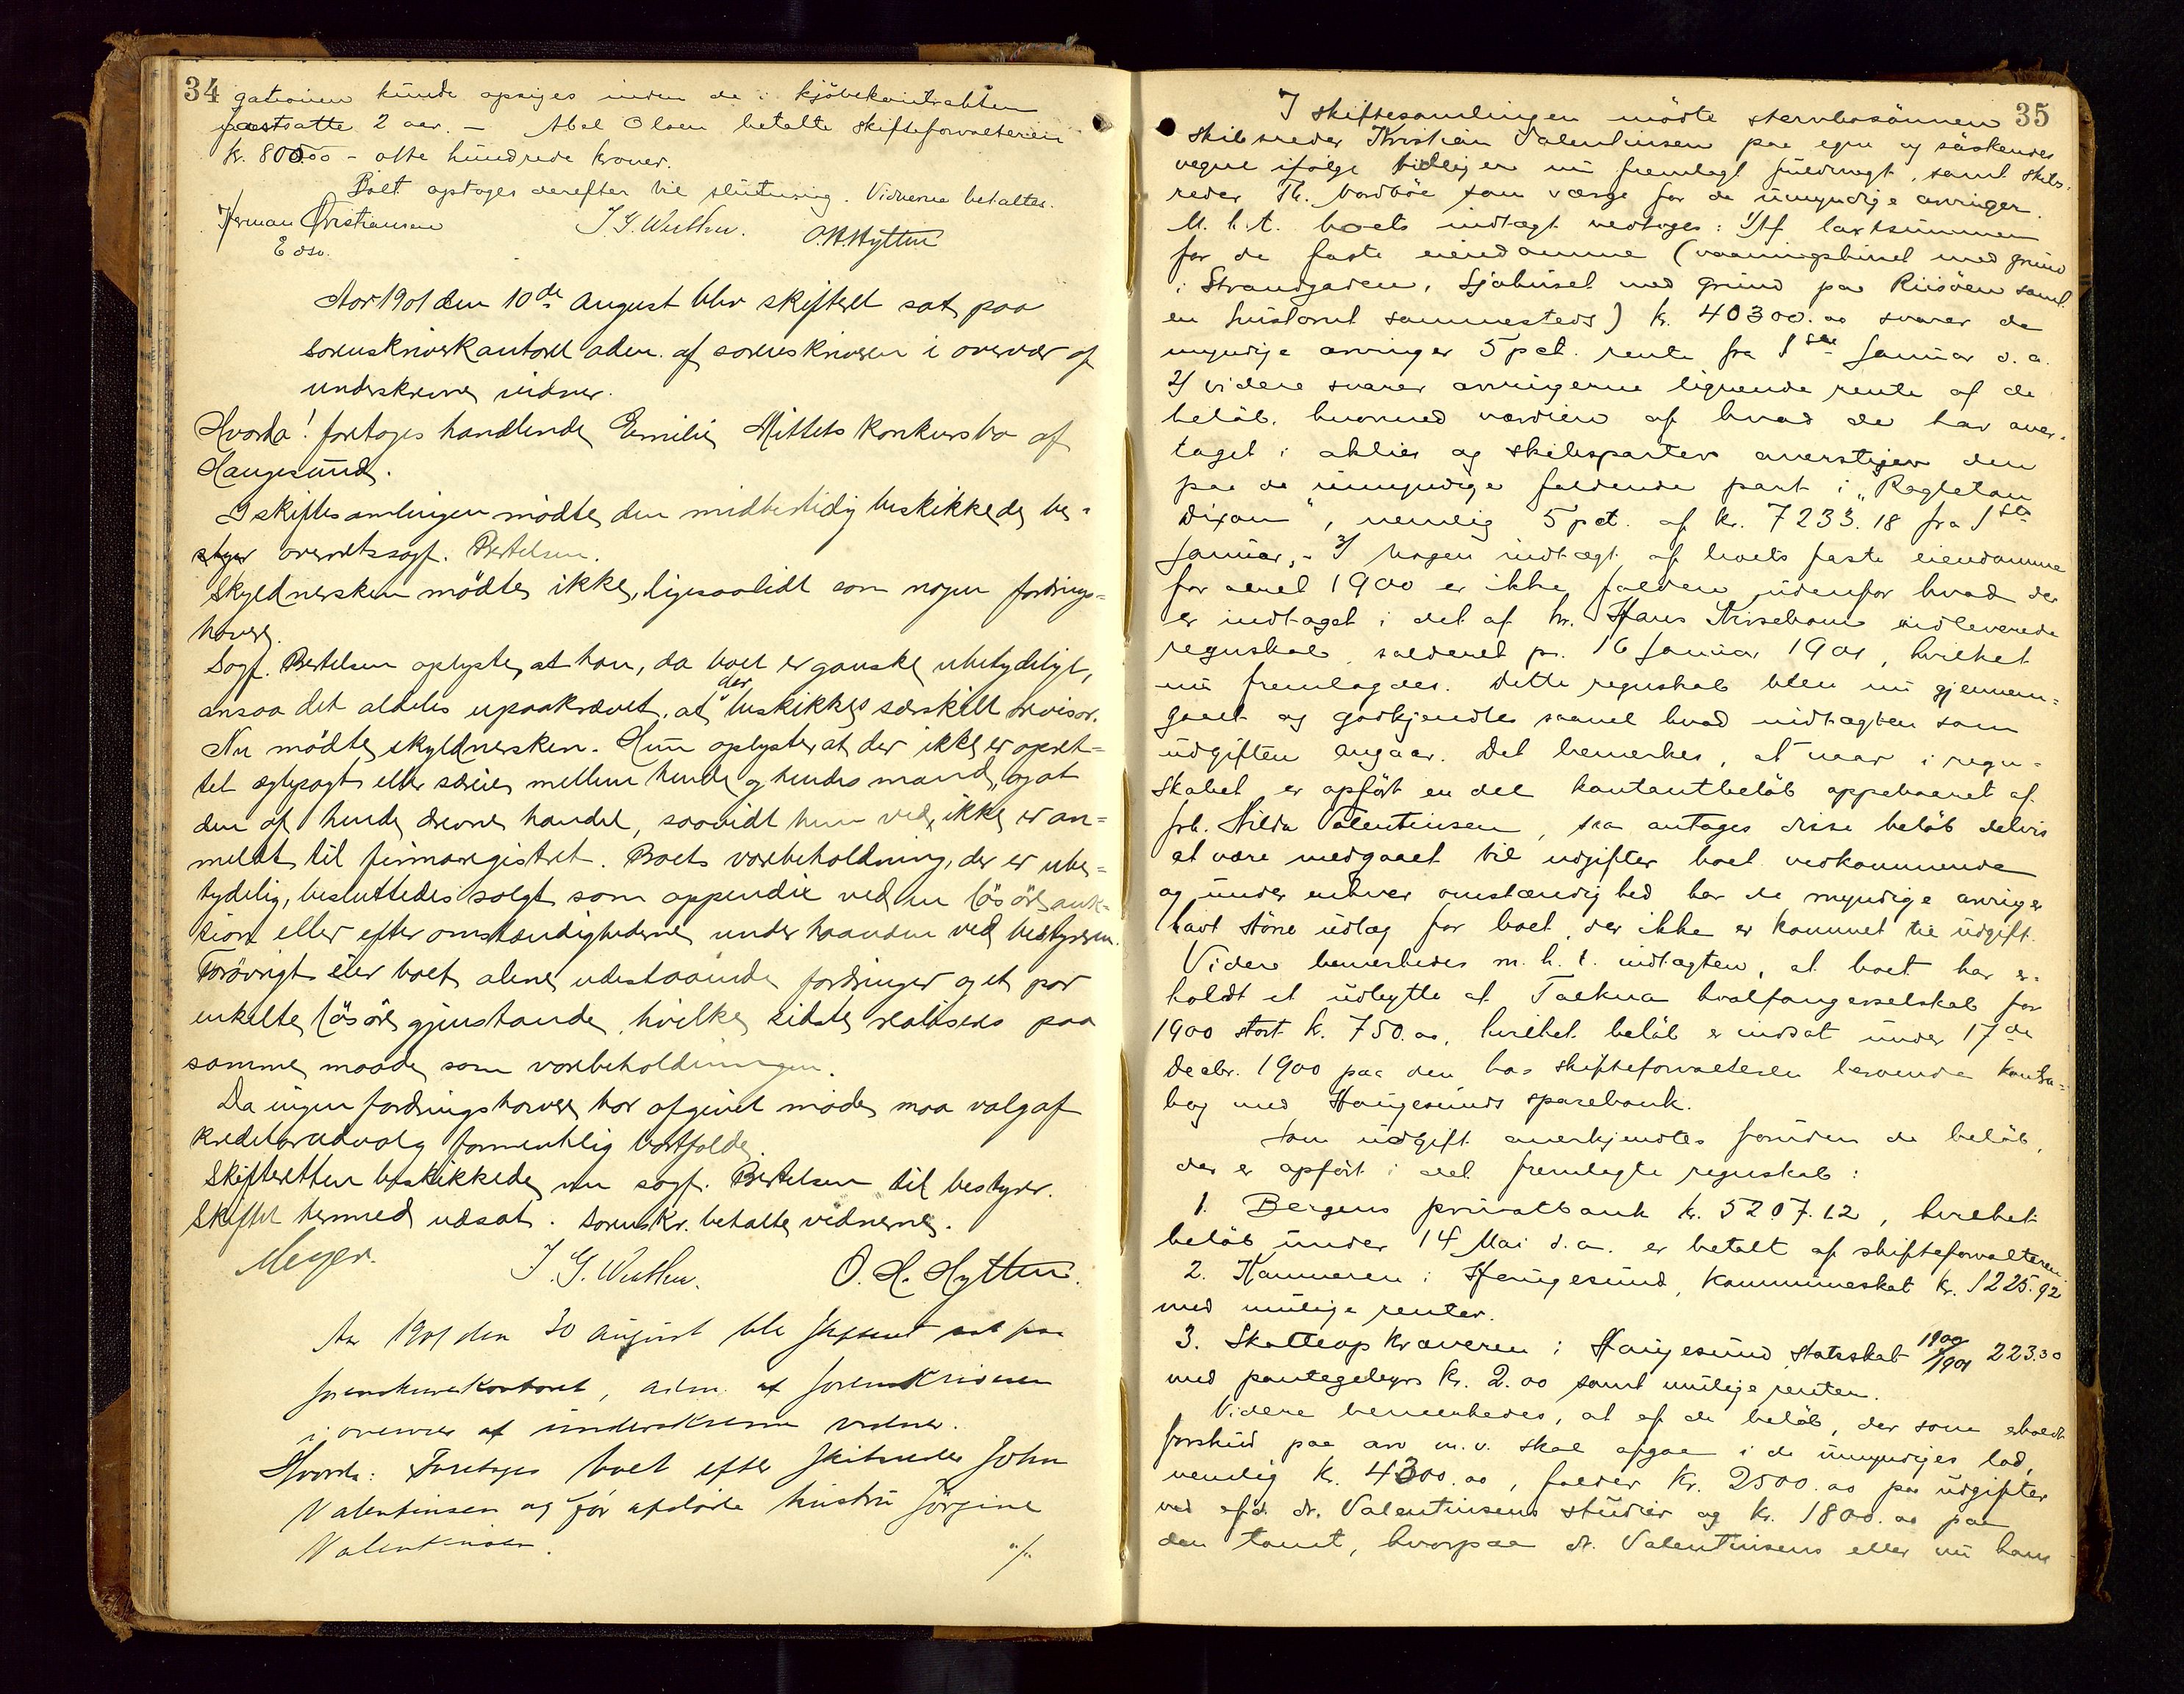 34
gationen kunde opsiges inden de i kjöbekontrakten
fastsatte 2 aar. — Abel Olsen betalte skifteforvalteren
kr. 800.00 – otte hundrede kroner.
Boet optoges derefter til slutning. Vidnerne betaltes.
Herman Christiansen J. G. Wuthen. O. H. Hytten
Edsv.
Aar 1901 den 10de august blev skifteret sat paa
sorenskriverkontoret adm. af sorenskriveren i overvær af
underskrevne vidner.
Hvorda! foretoges handlende Emilie Mittets konkursbo af
Haugesund.
I skiftesamlingen mödte den midlertidig beskikkede be-
styrer overretssagf. Bertelsen.
Skyldnersken mödte ikke, ligesaalidt som nogen fordrings-
havere.
Sagf. Bertelsen oplyste, at han, da boet er ganske ubetydeligt,
ansaa det aldeles upaakrævet, at der beskikkes særskilt revisor.
Nu mödte skyldnersken. Hun oplyste at der ikke er opret-
tet ægtepagt eller særeie mellem hende og hendes mand, og at
den af hende drevne handel, saavidt hun ved, ikke er an-
meldt til firmaregistret. Boets varebeholdning, der er ube-
tydelig, besluttedes solgt som appendix ved en lösöre auk-
tion eller efter omstændighederne under haanden ved bestyreren.
Forövrigt eier boet alene udestaaende fordringer og et par
enkelte lösöre gjenstande, hvilke sidste realiseres paa
samme maade som varebeholdningen.
Da ingen fordringshavere har afgivet möde maa valg af
kreditorudvalg formentlig bortfalde.
Skifteretten beskikkede nu sagf. Bertelsen til bestyrer.
Skiftet hermed udsat. Sorenskr. betalte vidnerne.
Meyer. J. G. Wuthen. O. H. Hytten.
Aar 1901 den 30 august blev skifteret sat paa
sorenskriverkontoret, adm. af sorenskriveren
i overvær af underskrevne vidner.
Hvorda: Foretoges boet efter skibsreder John
Valentinsen og för afdöde hustru Jörgine
Valentinsen. ./.
35
I skiftesamlingen mödte stervbosönnen
skibsreder Kristian Valentinsen paa egne og söskendes
vegne ifölge tidligere nu fremlagt fuldmagt, samt skibs-
reder Th. Vordböe som værge for de umyndige arvinger.
M. h. t. boets indtægt vedtoges: 1/ Af taxtsummen
for de faste eiendomme (vaaningshuset med grund
i Strandgaden, Sjöhuset med grund paa Risöen samt
en hustomt sammesteds) kr. 40300.00 svarer de
myndige arvinger 5 pct. rente fra 1ste Januar d. a.
2/ videre svarer arvingerne lignende rente af de
belöb, hvormed værdien af hvad de har over-
taget i aktier og skibsparter overstiger den
paa de umyndige faldende part i "Ragleton
Dixon", nemlig 5 pct. af kr. 7233.18 fra 1ste
Januar, - 3/ nogen indtægt af boets faste eiendomme
for aaret 1900 er ikke falden udenfor hvad der
er indtaget i det af hr. Hans Kirsebom indleverede
regnskab, salderet pr. 16 Januar 1901, hvilket
nu fremlagdes. Dette regnskab blev nu gjennem-
gaaet og godkjendtes saavel hvad indtægten som
udgiften angaar. Det bemerkes, at naar i regn-
skabet er opfört en del kontantbelöb oppebaaret af
frk. Hilda Valentinsen, saa antages disse belöb delvis
at være medgaaet til udgifter boet vedkommende
og under enhver omstændighed har de myndige arvinger
havt större udlæg for boet, der ikke er kommet til udgift.
Videre bemerkedes m. h. t. indtægten, at boet har er-
holdt et udbytte af Talkna hvalfangerselskab for
1900 stort kr. 750.00, hvilket belöb er indsat under 17de
Decbr. 1900 paa den hos skifteforvalteren beroende kontra-
bog med Haugesunds sparebank.
Som udgift anerkjendtes foruden de belöb,
der er opfört i det fremlagte regnskab:
1. Bergens privatbank kr. 5207.12, hvilket
belöb under 14 Mai d. a. er betalt af skifteforvalteren.
2. Kæmneren i Haugesund, kommuneskat kr. 1225.92
med mulige renter.
3. Skatteopkræveren i Haugesund, statsskat 1900/1901 223.30
med pantegebyrs kr. 2.00 samt mulige renter.
Videre bemerkedes, at af de belöb, der som erholdt
forskud paa arv m. v. skal afgaa i de umyndiges lod,
nemlig kr. 4300.00, falder kr. 2500.00 paa udgifter
ved afd. dr. Valentinsens studier og kr. 1800.00 paa
den tomt, hvorpaa dr. Valentinsens eller nu hans